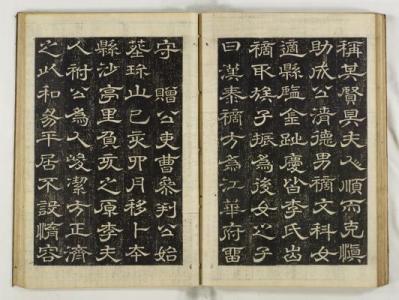 稱其賢夫人順而克愼
助成公清德男禰文科女
適縣監金趾慶皆李氏出
禰取族子振爲後女之子
曰漢泰禰方爲江華府留
守 贈公吏曹參判公始
葬珎山己亥卯月移卜夲
縣沙亭里負亥之原李夫
人祔公爲人峻潔方正濟
之以和易平居不設惰容